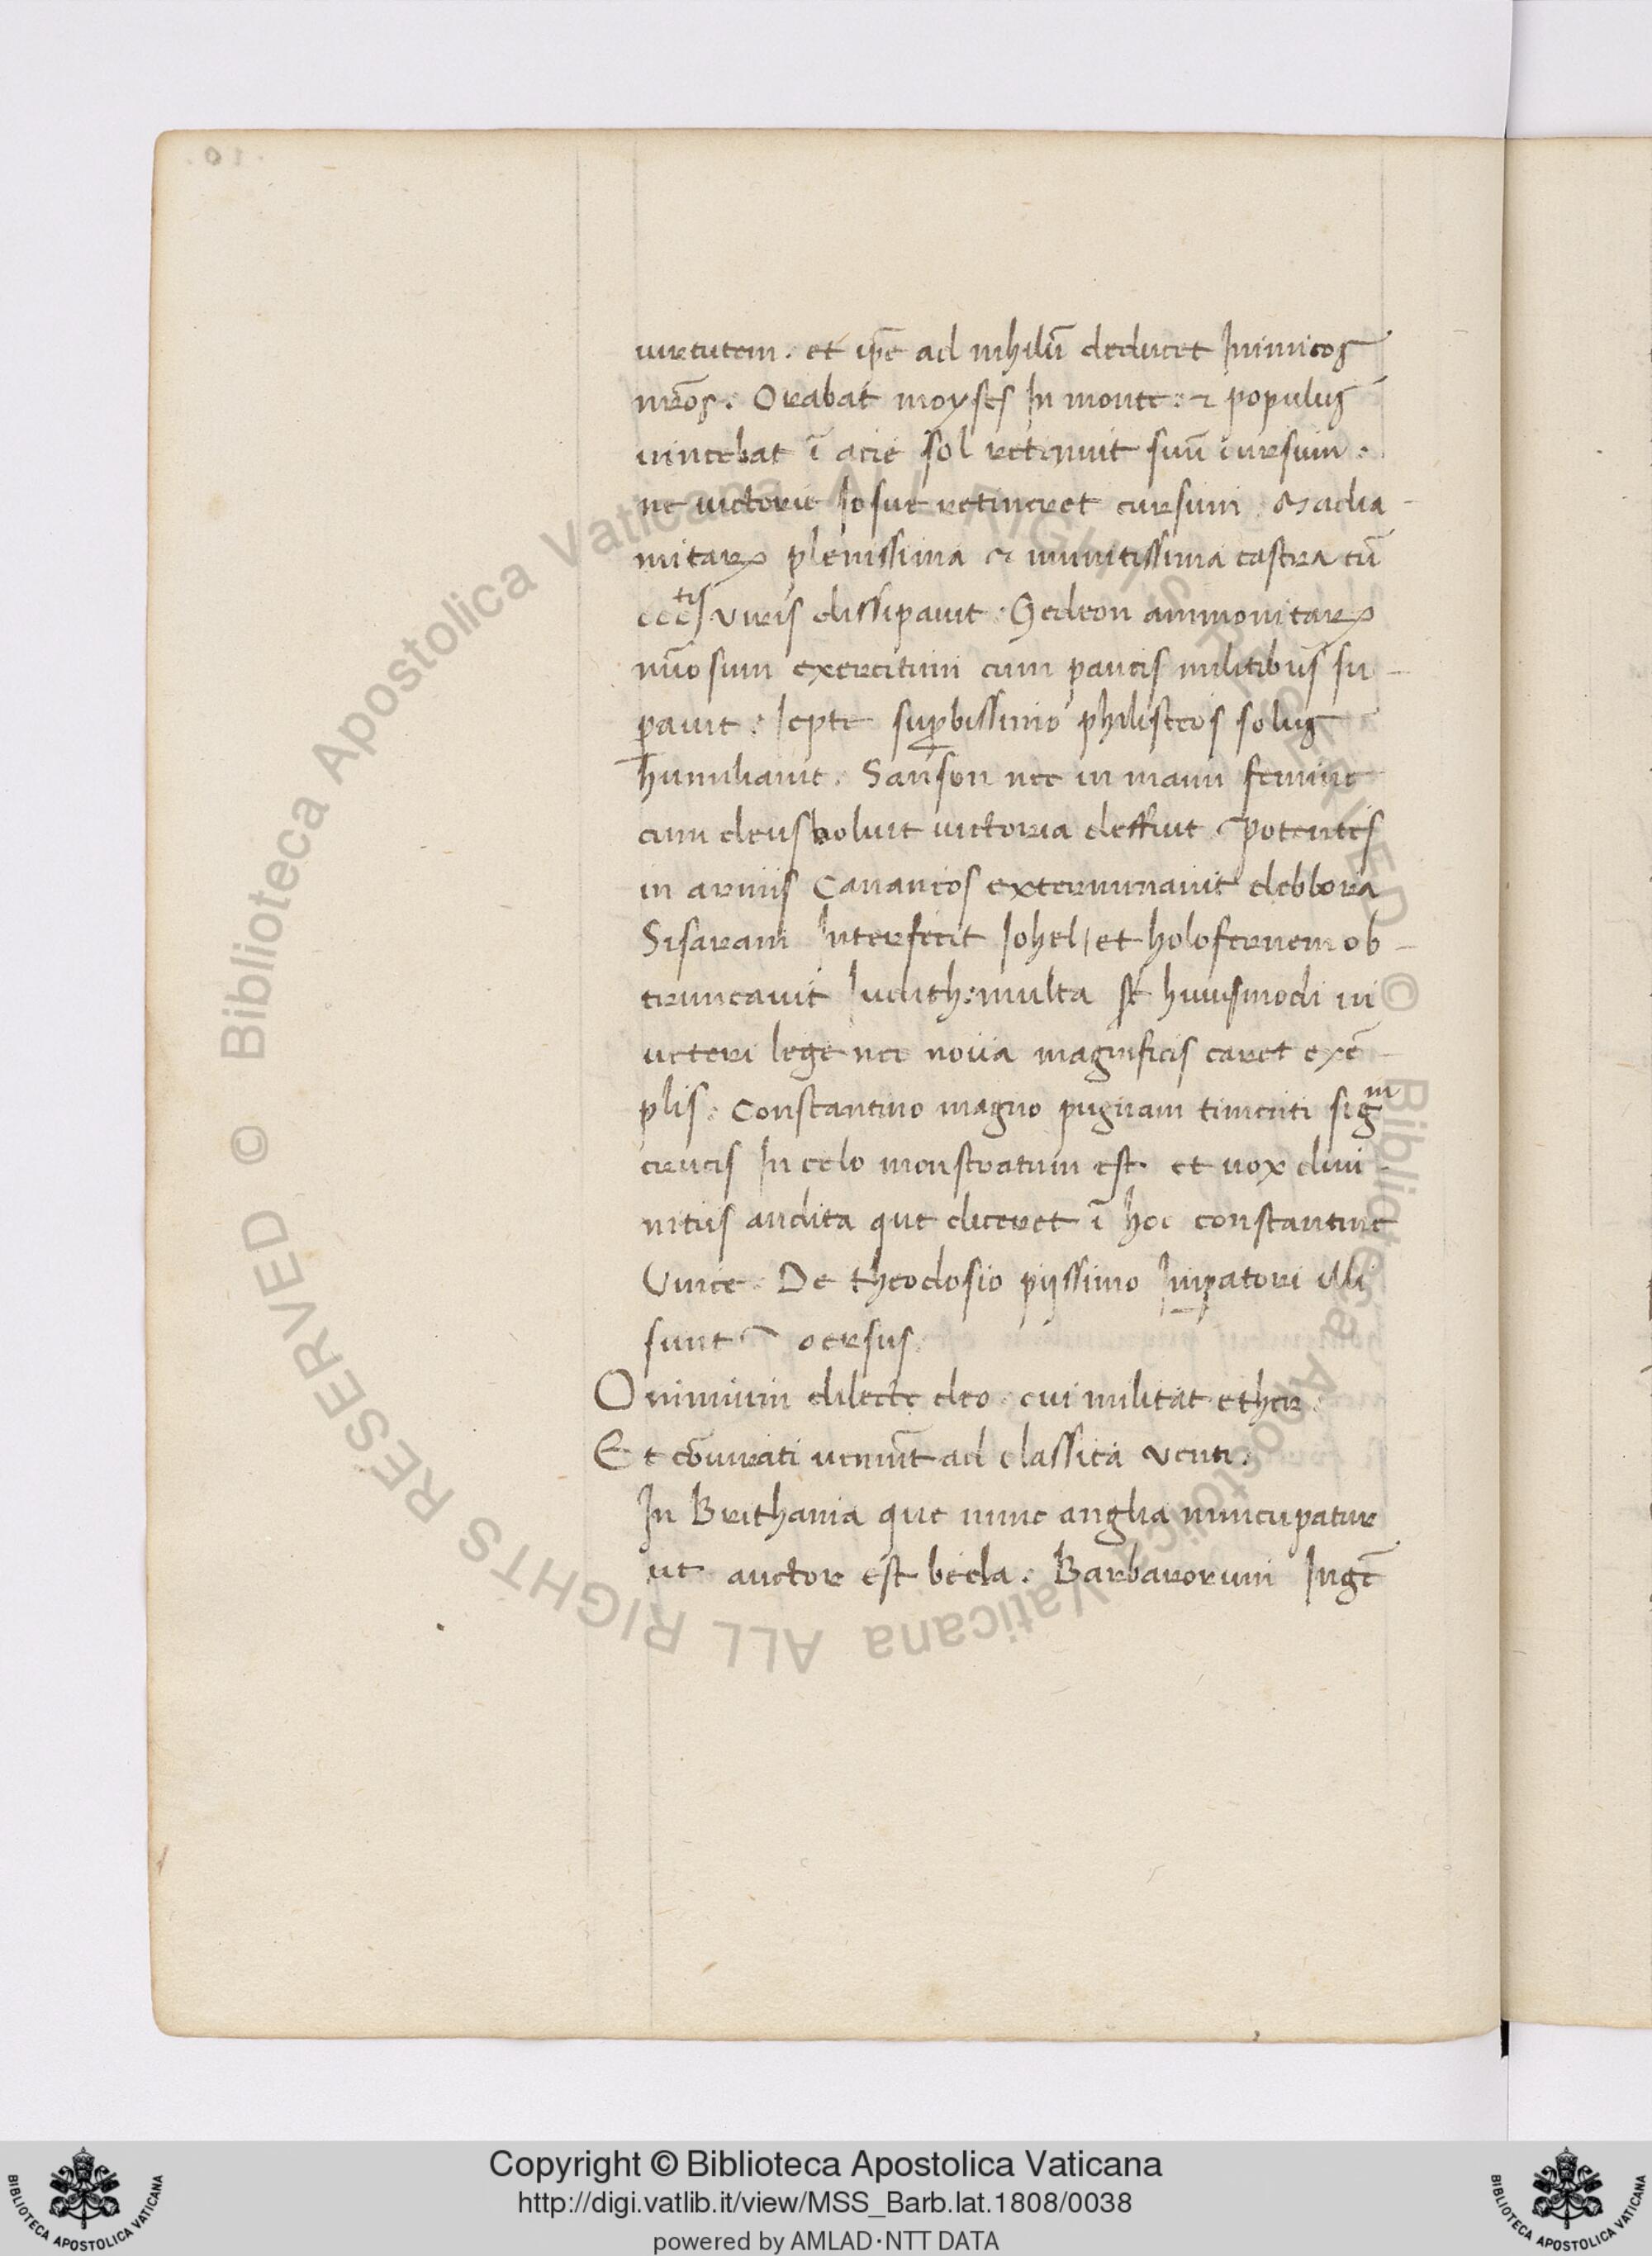 uirtutem. et ip̄e ad nihilū deducet Inimicos
nr̄os. Orabat moyses In monte. & populus
uincebat ī acie sol retinuit suū cursum.
ne uictorie Iosue retineret cursum. Madia-
mitarꝝ plenissima & munitissima castra cū
cccᵗⁱˢ uiris dissipauit. Gedeon ammonitarꝝ
nūosum exercitum cum paucis militibus su-
ꝑauit. Iepte suꝑbissimo philisteos solus
humiliauit. Sanson nec in manu femine
cum deus uoluit uictoria deffuit potentes
in armis Cananeos exterminauit debbora
Sisaram Interfecit Iohel, et holofernem ob-
truncauit Iudith. multa st̄ huiusmodi in
ueteri lege nec noua magnificis caret exē-
plis. Constantino magno pugnam timenti sigᵐ
crucis In celo monstratum est. et uox diui-
nitus audita que diceret ī hoc constantine
Vince. De theodosio piissimo Imꝑatori illi
sunt uersus.
O nimium dilecte deo. cui militat ether.
Et cōiurati ueniūt ad classica venti.
In Brithania que nunc anglia nuncupatur
ut auctor est beda. Barbarorum Ingē
.10.
Copyright © Biblioteca Apostolica Vaticana
http://digi.vatlib.it/view/MSS_Barb.lat.1808/0038
powered by AMLAD·NTT DATA
BIBLIOTECA APOSTOLICA VATICANA
BIBLIOTECA APOSTOLICA VATICANA
© Biblioteca Apostolica Vaticana ALL RIGHTS RESERVED © Biblioteca Apostolica Vaticana ALL RIGHTS RESERVED